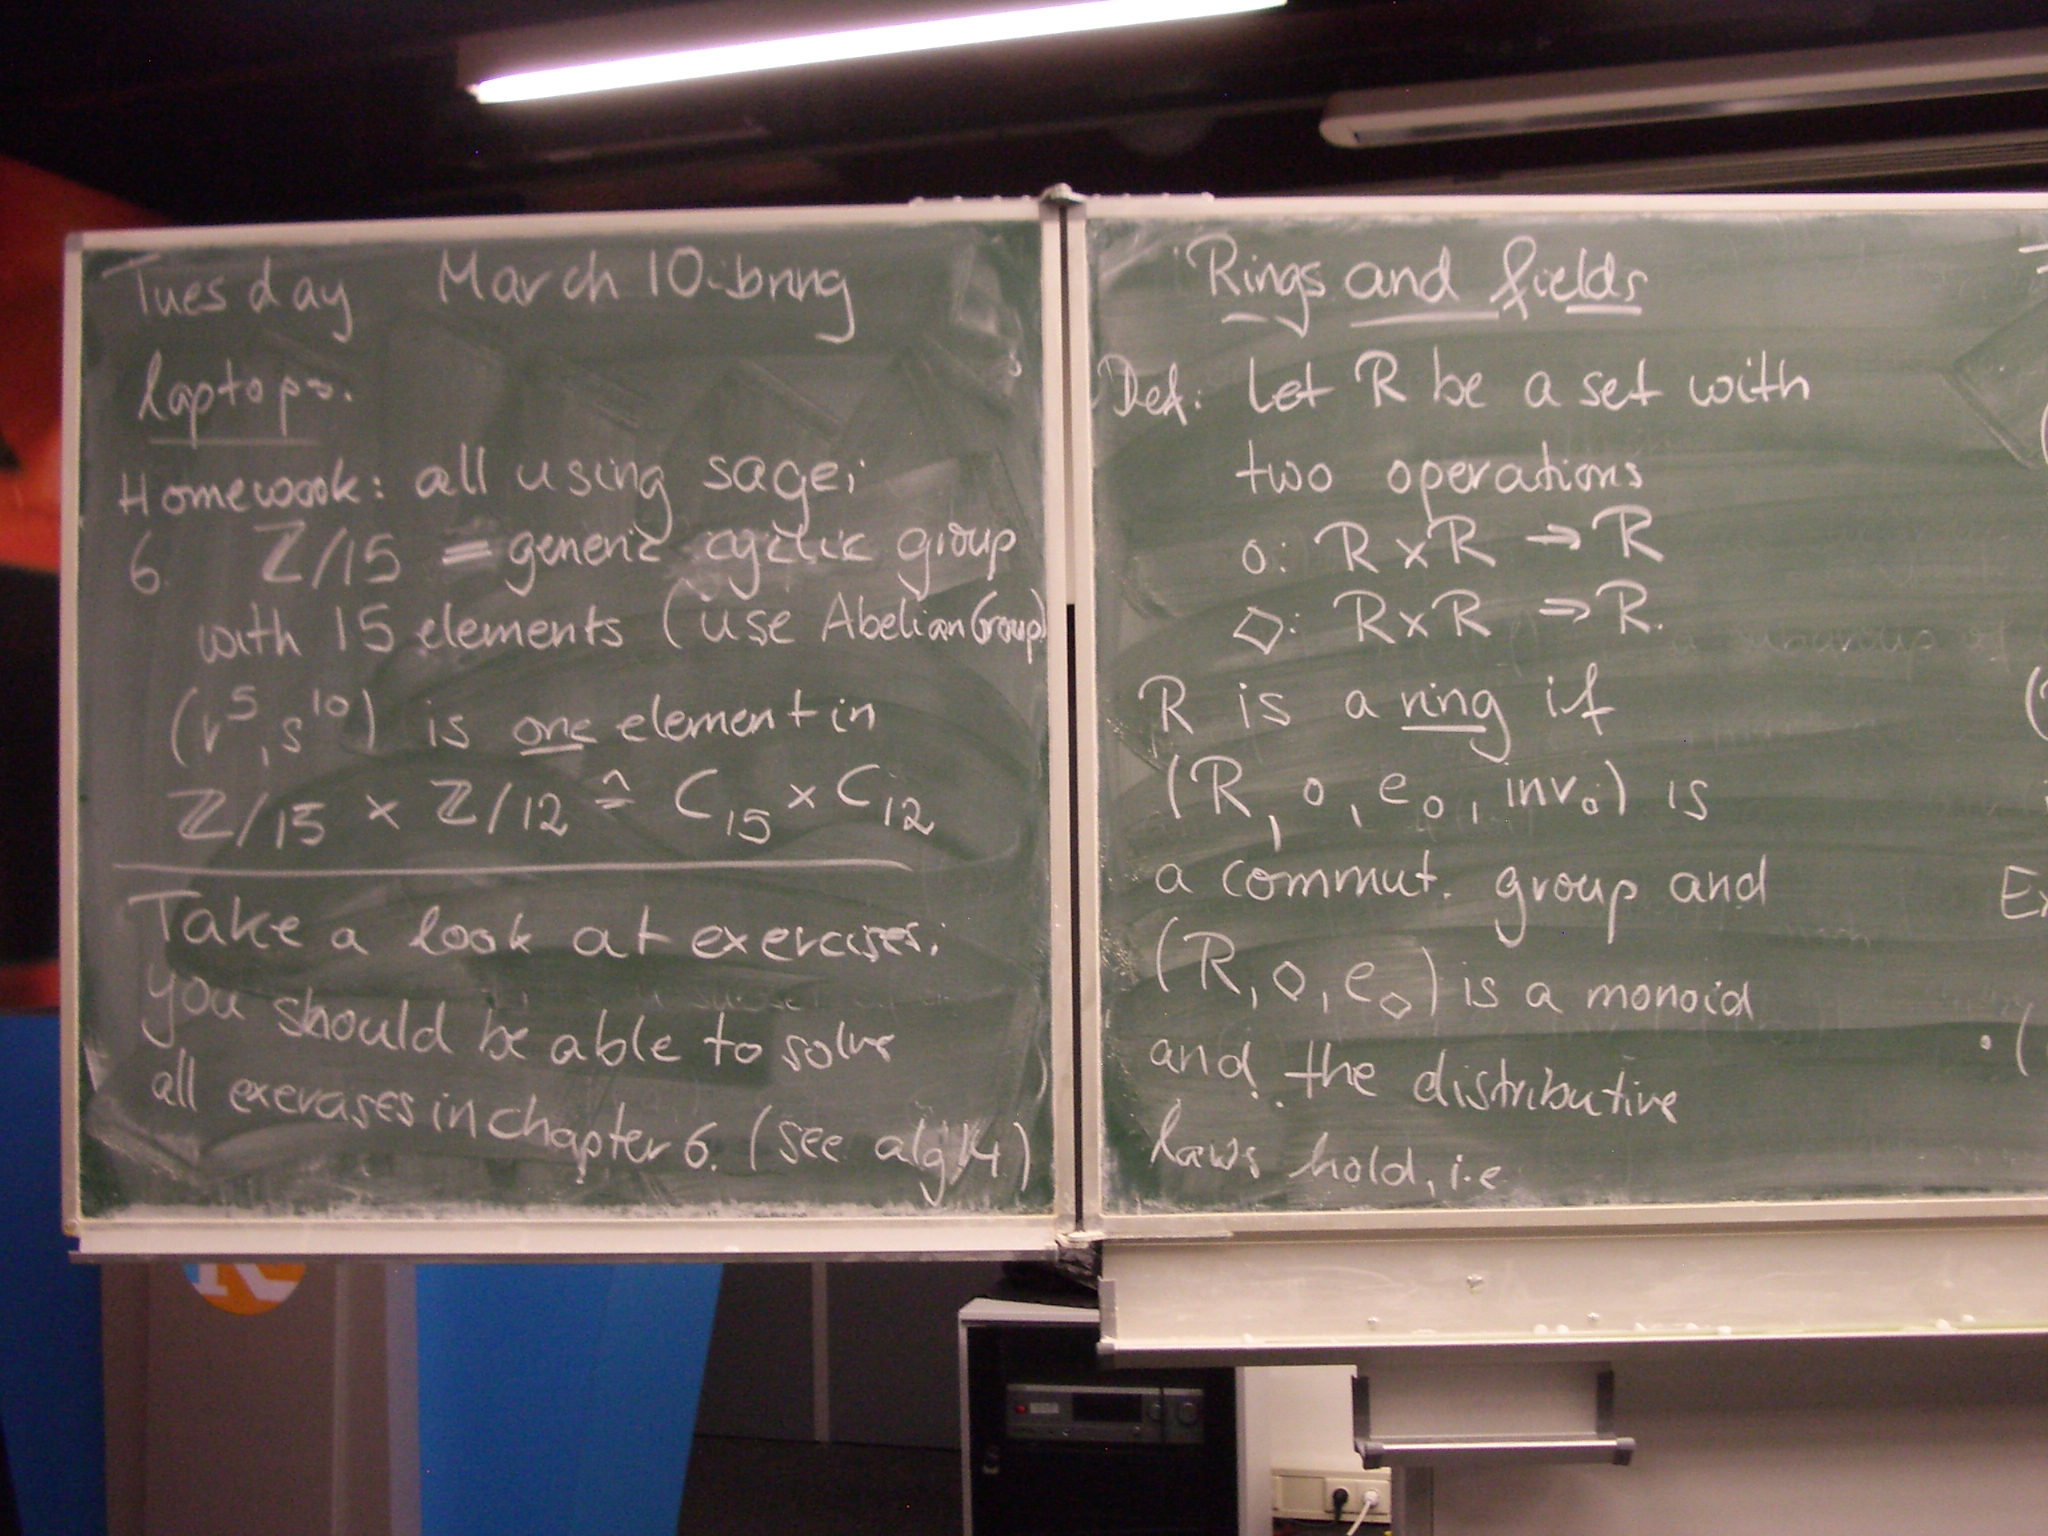 Tuesday March 10: bring
laptops.
Homework: all using sage;
6. ℤ/15 = generic cyclic group
with 15 elements (use AbelianGroup)
(r⁵, s¹⁰) is one element in
ℤ/15 × ℤ/12 ≙ C₁₅ × C₁₂
Take a look at exercises.
you should be able to solve
all exercises in chapter 6. (see alg14)
Rings and fields
Def: Let R be a set with
two operations
∘: R × R → R
◇: R × R → R.
R is a ring if
(R, ∘, e∘, inv∘) is
a commut. group and
(R, ◇, e◇) is a monoid
and the distributive
laws hold, i.e
Ex